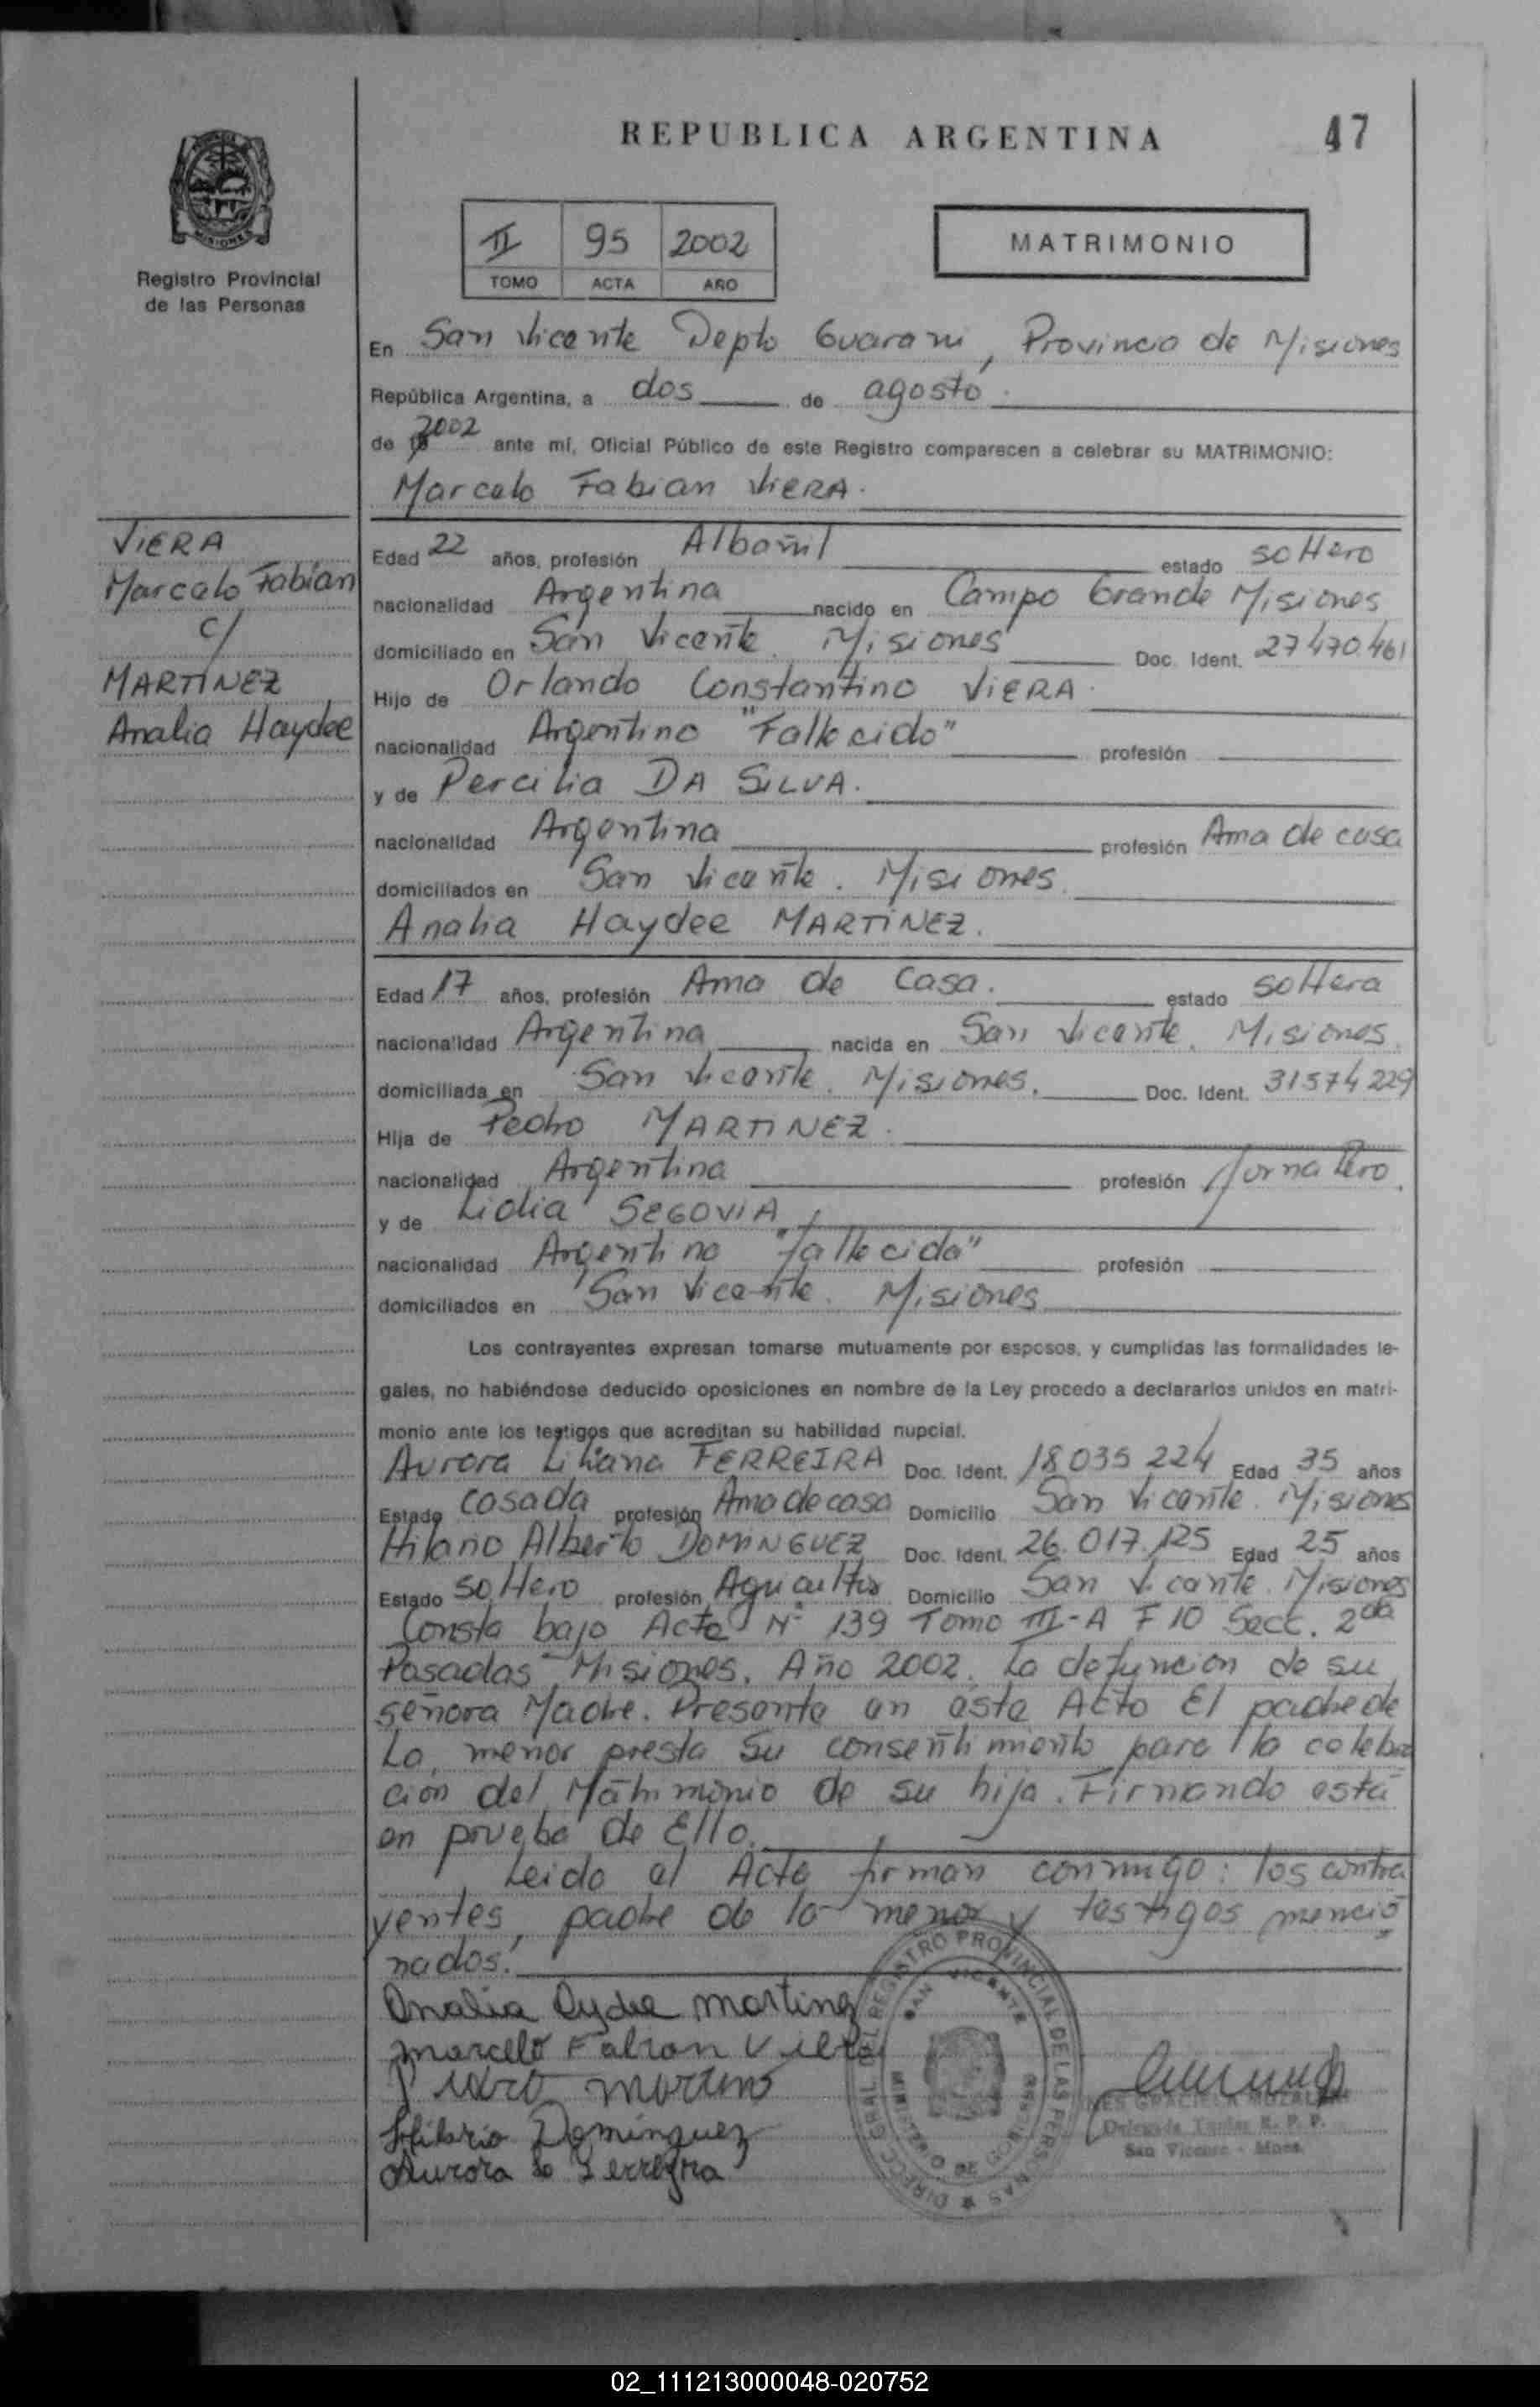 REPUBLICA ARGENTINA
47
MISIONES
Registro Provincial
de las Personas
II 95 2002
TOMO ACTA AÑO
MATRIMONIO
En San Vicente Depto Guarani, Provincia de Misiones
República Argentina, a dos de agosto
de 2002 ante mí, Oficial Público de este Registro comparecen a celebrar su MATRIMONIO:
Marcelo Fabian VIERA.
VIERA
Marcelo Fabian
c/
MARTINEZ
Analia Haydee
Edad 22 años, profesión Albañil estado soltero
nacionalidad Argentina nacido en Campo Grande Misiones
domiciliado en San Vicente. Misiones Doc. Ident. 27470.461
Hijo de Orlando Constantino VIERA.
nacionalidad Argentino "Fallecido" profesión
y de Percilia DA SILVA.
nacionalidad Argentina profesión Ama de casa
domiciliados en San Vicente. Misiones.
Analia Haydee MARTINEZ.
Edad 17 años, profesión Ama de Casa. estado soltera
nacionalidad Argentina nacida en San Vicente. Misiones.
domiciliada en San Vicente. Misiones. Doc. Ident. 31574229
Hija de Pedro MARTINEZ.
nacionalidad Argentina profesión Jornalero.
y de Lidia SEGOVIA
nacionalidad Argentina "fallecida" profesión
domiciliados en San Vicente. Misiones
Los contrayentes expresan tomarse mutuamente por esposos, y cumplidas las formalidades le-
gales, no habiéndose deducido oposiciones en nombre de la Ley procedo a declararlos unidos en matri-
monio ante los testigos que acreditan su habilidad nupcial.
Aurora Liliana FERREIRA Doc. Ident. 18035224 Edad 35 años
Estado casada profesión Ama de casa Domicilio San Vicente. Misiones
Hilario Alberto DOMINGUEZ Doc. Ident. 26.017.125 Edad 25 años
Estado soltero profesión Agricultor Domicilio San Vicente. Misiones
Consta bajo Acta Nº 139 Tomo III-A F 10 Secc. 2da
Posadas Misiones. Año 2002. La defuncion de su
señora Madre. Presente en este Acto El padre de
La menor presta su consentimiento para la celebra
cion del Matrimonio de su hija. Firmando esta
en prueba de Ello.
Leido el Acta firman conmigo: los contra
yentes, padre de la menor y testigos mencio
nados.
Analia Aydee martinez
marcelo Fabian Viera
Hilario Dominguez
Aurora Ferreyra
DIRECC. GRAL. DEL REGISTRO PROVINCIAL DE LAS PERSONAS
SAN VICENTE
MINISTERIO DE GOBIERNO
San Vicente - Mnes.
02_111213000048-020752